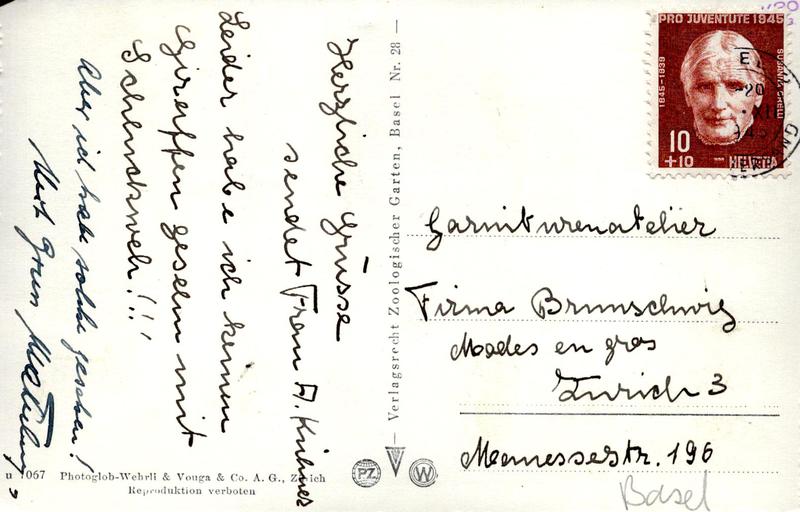 Herzliche Grüsse
sendet Frau A.
Leider habe ich keinen
Giraffen gesehn mit
Schenkweh!!!
Aber ich habe solche gesehen!
Verlagsrecht Zoologischer Garten, Basel Nr. 28
u 1067 Photoglob-Wehrli & Vouga & Co. A. G., Zürich
Reproduktion verboten
PZ
W
PRO JUVENTUTE 1945
1845-1939
SUSANNA ORELLI
10
+10
HELVETIA
Garniturenatelier
Firma Brunschwig
Modes en gros
Zürich 3
Manessestr. 196
Basel